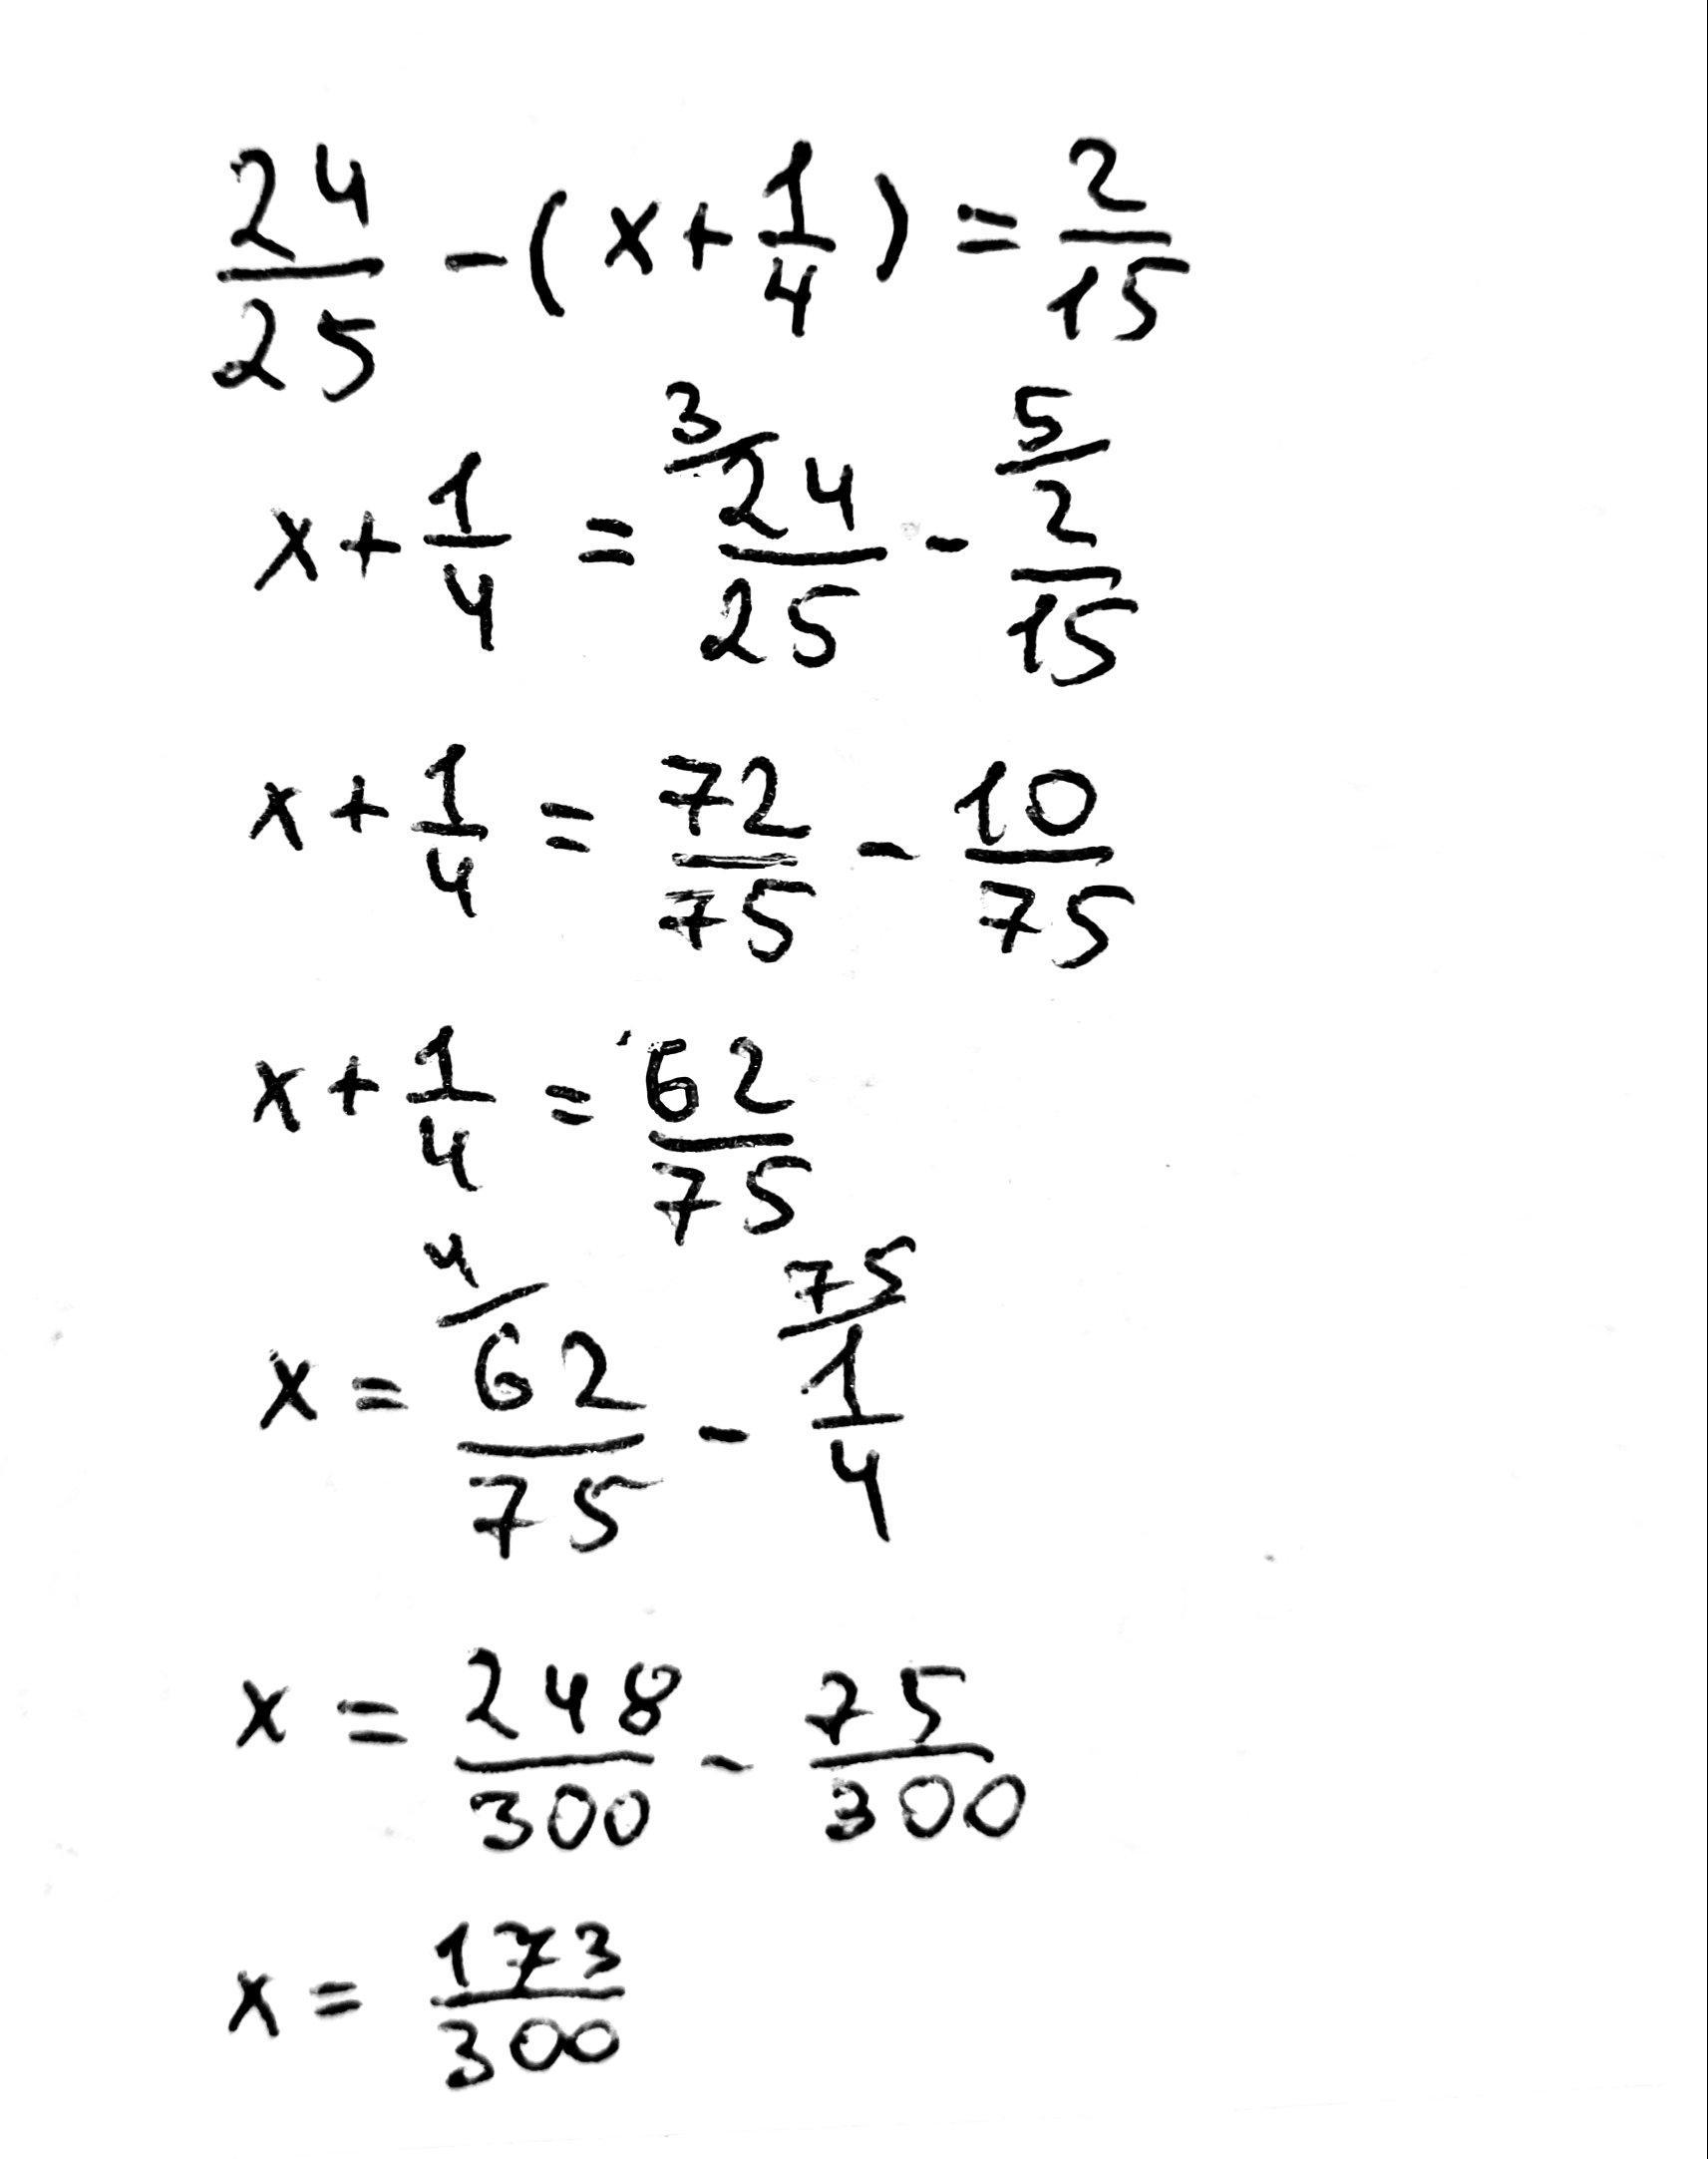 24/25 - (x + 1/4) = 2/15
x + 1/4 = 3/ 24/25 - 5/ 2/15
x + 1/4 = 72/75 - 10/75
x + 1/4 = 62/75
x = 4/ 62/75 - 75/ 1/4
x = 248/300 - 75/300
x = 173/300